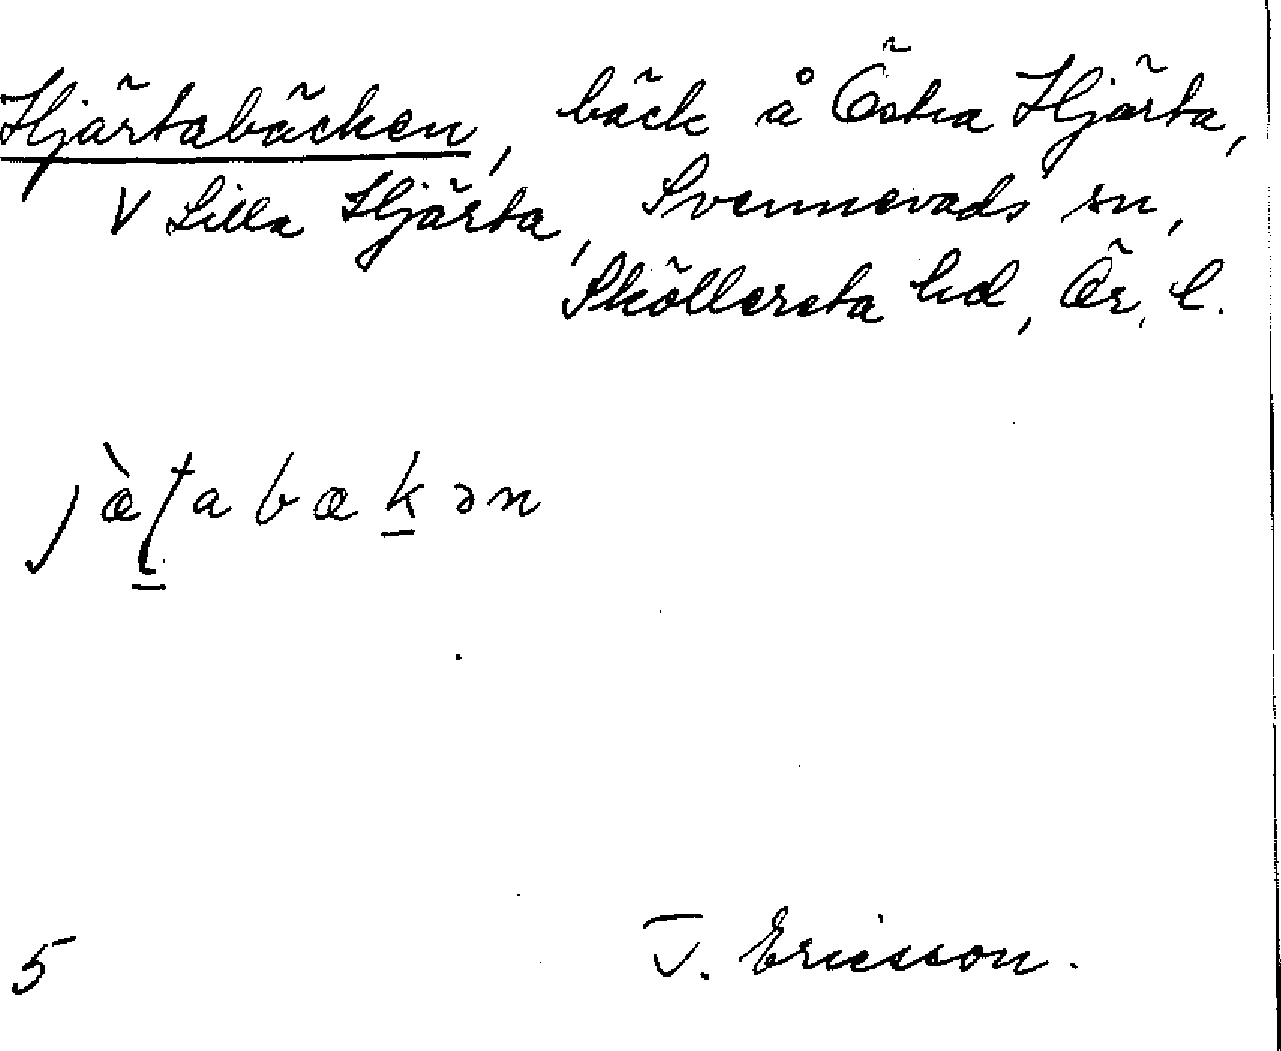 Hjärtabäcken, bäck å Östra Hjärta,
V Lilla Hjärta, Svennevads sn,
Sköllersta hd, Ör. l.
jæ̀ʈ̠abæḵən
5 T. Ericsson.